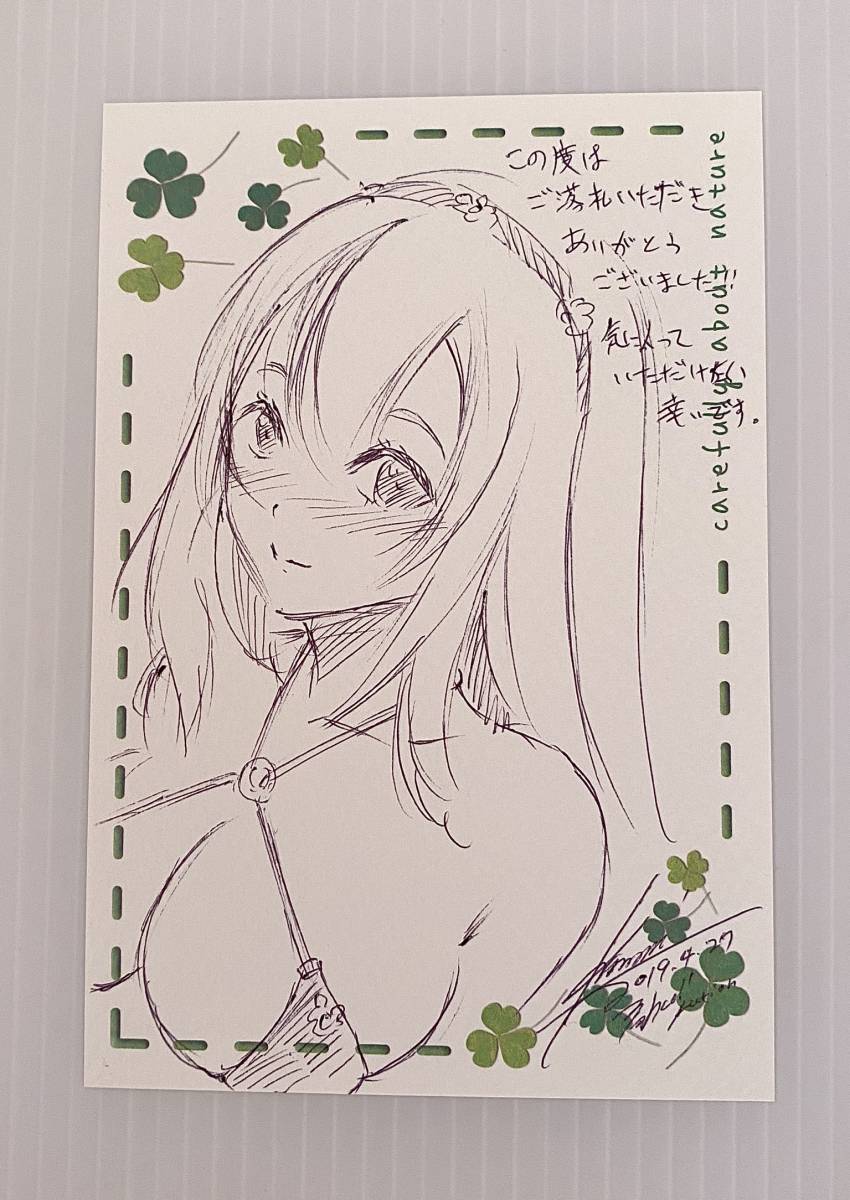 この度は
ご落札いただき
ありがとう
ございました!!
気に入って
いただけると
幸いです。
carefully about nature
2019.4.27